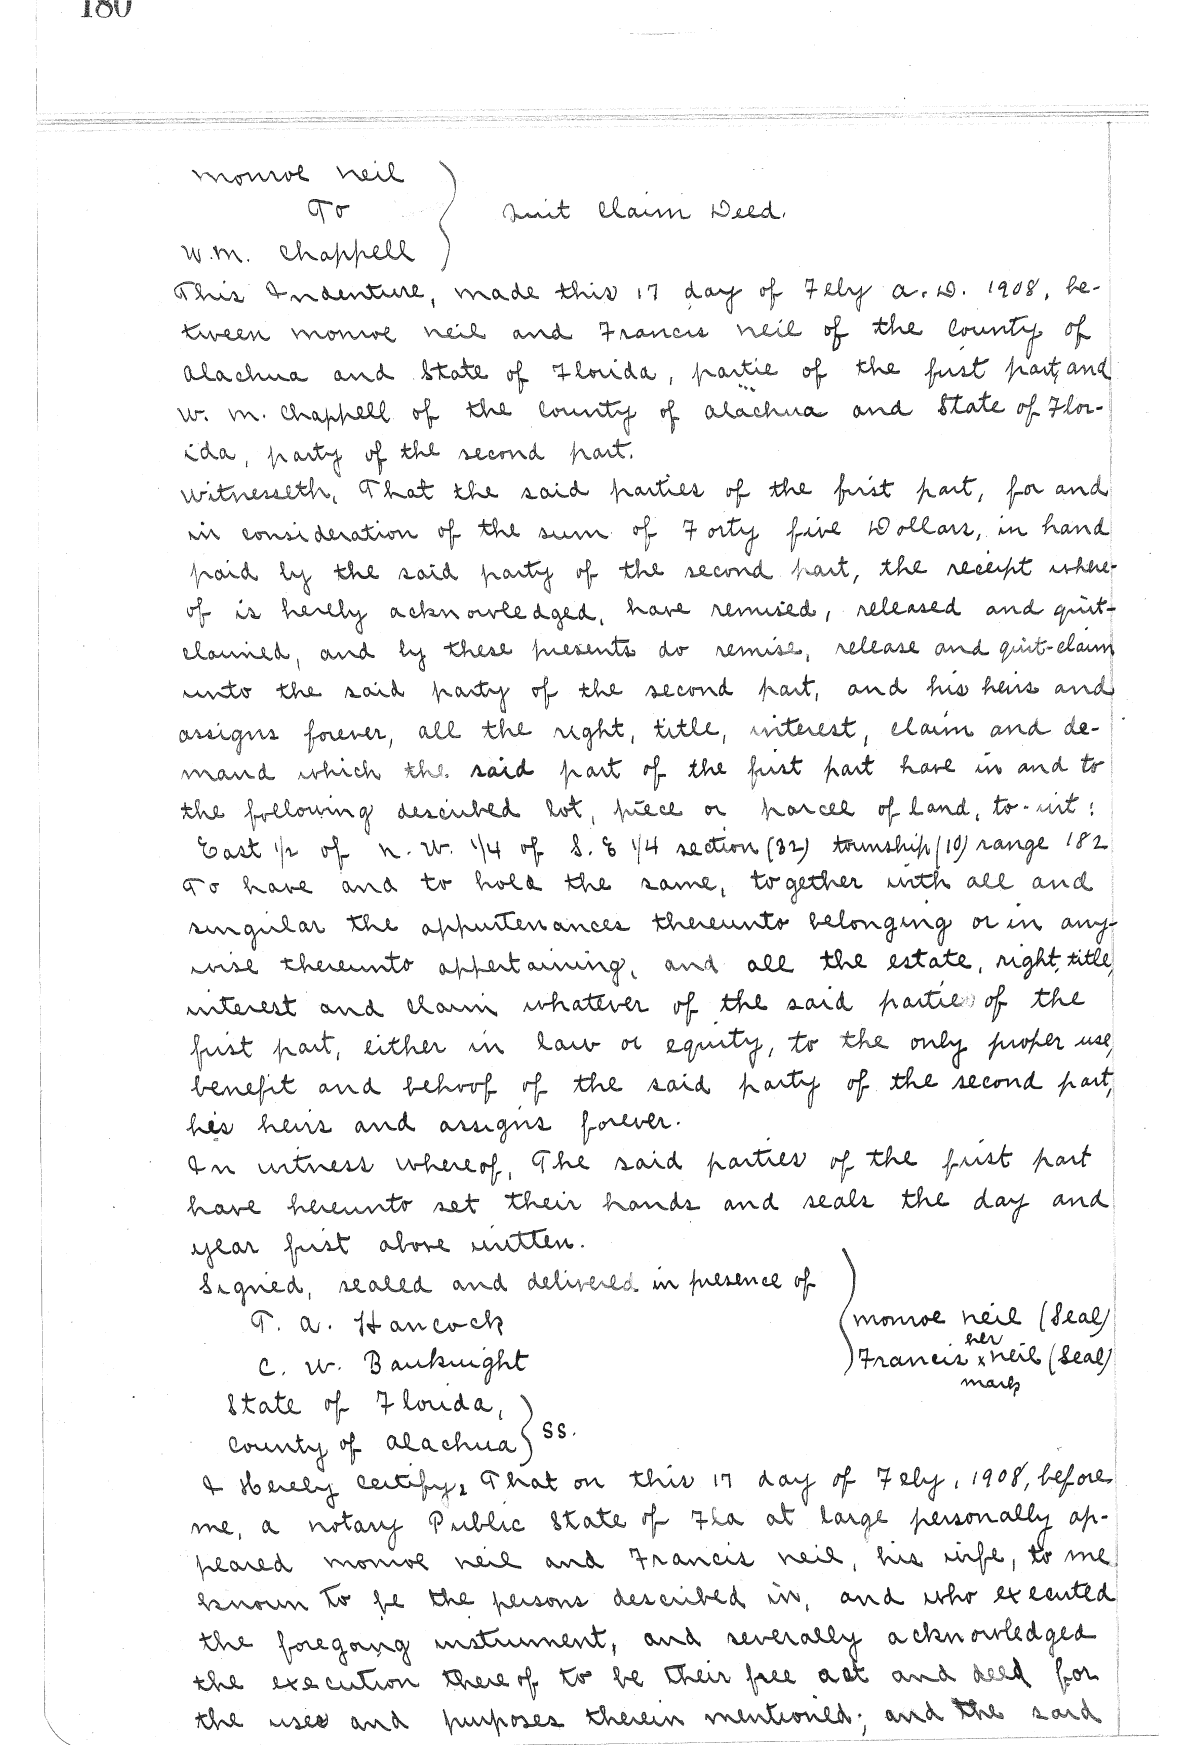 180
Monroe Neil
To
Quit Claim Deed.
W.M. Chappell
This Indenture, made this 17 day of Feby A.D. 1908, be-
tween Monroe Neil and Francis Neil of the County of
Alachua and State of Florida, partie of the first part, and
W. M. Chappell of the County of Alachua and State of Flor-
ida, party of the second part.
Witnesseth, That the said parties of the first part, for and
in consideration of the sum of Forty five Dollars, in hand
paid by the said party of the second part, the receipt where-
of is hereby acknowledged, have remised, released and quit-
claimed, and by these presents do remise, release and quit-claim
unto the said party of the second part, and his heirs and
assigns forever, all the right, title, interest, claim and de-
mand which the said part of the first part have in and to
the following described lot, piece or parcel of land, to-wit:
East 1/2 of N. W. 1/4 of S. E 1/4 section (32) township (10) range 182
To have and to hold the same, together with all and
singular the appurtenances thereunto belonging or in any-
wise thereunto appertaining, and all the estate, right, title,
interest and claim whatever of the said partie of the
first part, either in law or equity, to the only proper use,
benefit and behoof of the said party of the second part,
his heirs and assigns forever.
In witness whereof, The said parties of the first part
have hereunto set their hands and seals the day and
year first above written.
Signed, sealed and delivered in presence of
T. A. Hancock
Monroe Neil (Seal)
her
C. W. Bauknight
Francis x Neil (Seal)
mark
State of Florida,
County of Alachua
SS.
I Hereby Certify, That on this 17 day of Feby, 1908, before
me, a Notary Public State of Fla at large personally ap-
peared Monroe Neil and Francis Neil, his wife, to me
known to be the persons described in, and who executed
the foregoing instrument, and severally acknowledged
the execution thereof to be their free act and deed for
the uses and purposes therein mentioned; and the said